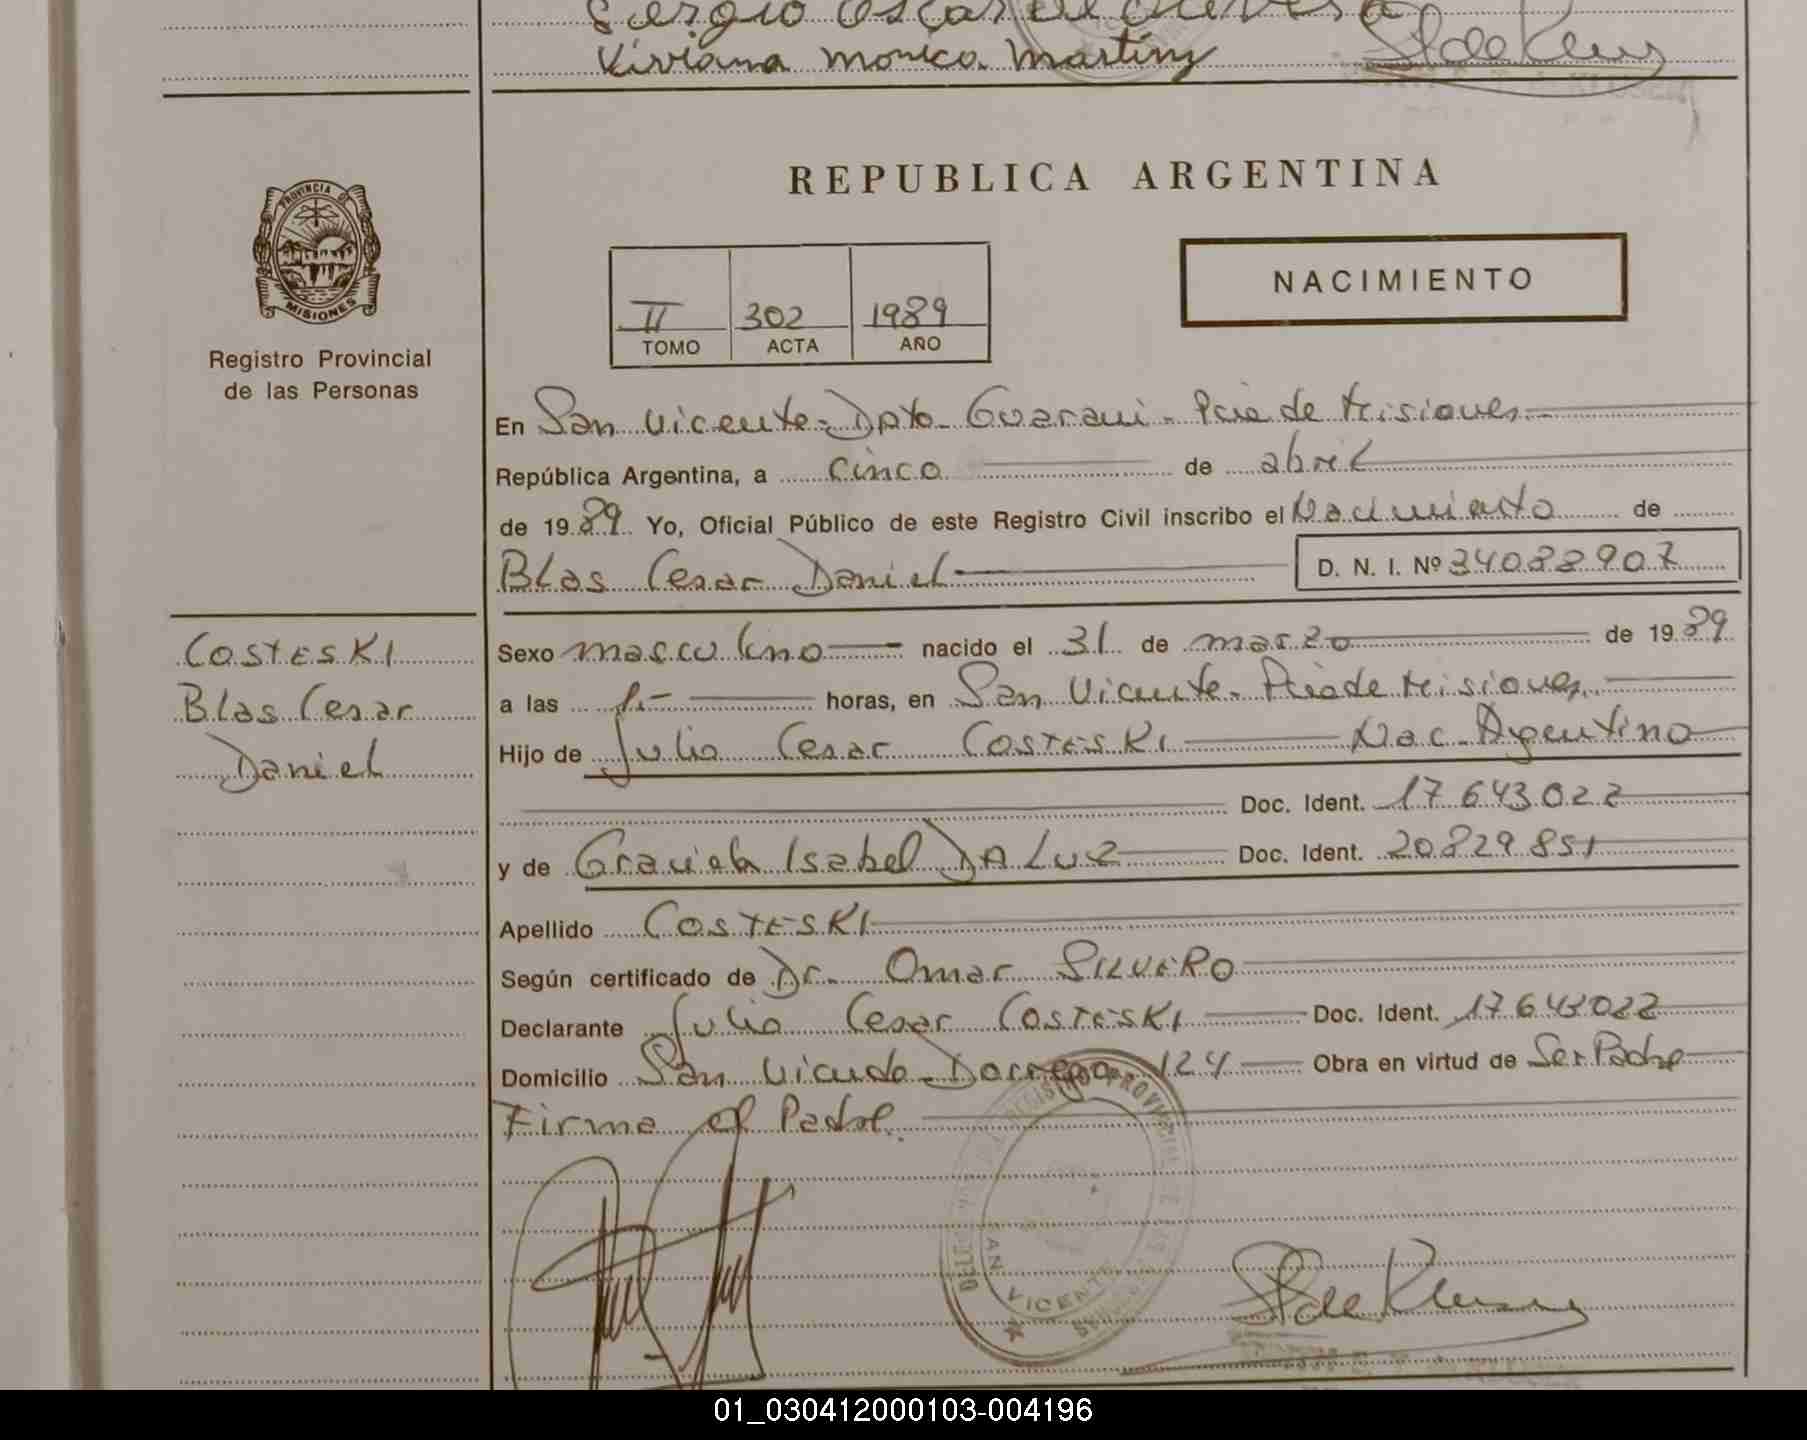 Sergio Oscar
Viviana Monica Martinz
PROVINCIA DE
MISIONES
Registro Provincial
de las Personas
REPUBLICA ARGENTINA
NACIMIENTO
II 302 1989
TOMO ACTA AÑO
En San Vicente - Dpto Guarani - Pcia de Misiones
República Argentina, a cinco de abril
de 1989 Yo, Oficial Público de este Registro Civil inscribo el Nacimiento de
Blas Cesar Daniel D. N. I. Nº 34088907
COSTESKI
Blas Cesar
Daniel
Sexo masculino nacido el 31 de marzo de 1989
a las 1.- horas, en San Vicente - Pcia de Misiones
Hijo de Julio Cesar COSTESKI Nac. Argentino
Doc. Ident. 17643022
y de Graciela Isabel DA LUZ Doc. Ident. 20829851
Apellido COSTESKI
Según certificado de Dr. Omar SILVERO
Declarante Julio Cesar COSTESKI Doc. Ident. 17643022
Domicilio San Vicente - Dorrego 124 Obra en virtud de Ser Padre
Firma el Padre.
SAN VICENTE
01_030412000103-004196